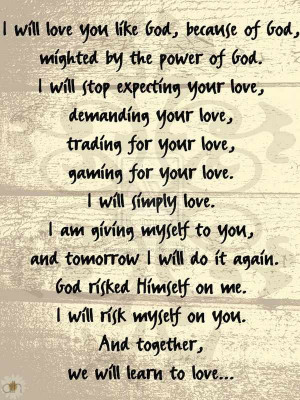 I will love you like God, because of God,
mighted by the power of God.
I will stop expecting your love,
demanding your love,
trading for your love,
gaming for your love.
I will simply love.
I am giving myself to you,
and tomorrow I will do it again.
God risked Himself on me.
I will risk myself on you.
And together,
we will learn to love...